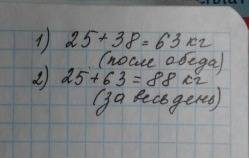 1) 25+38=63 кг
(после обеда)
2) 25+63=88 кг
(за весь день)